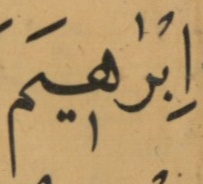 اِبْرٰهيمَ